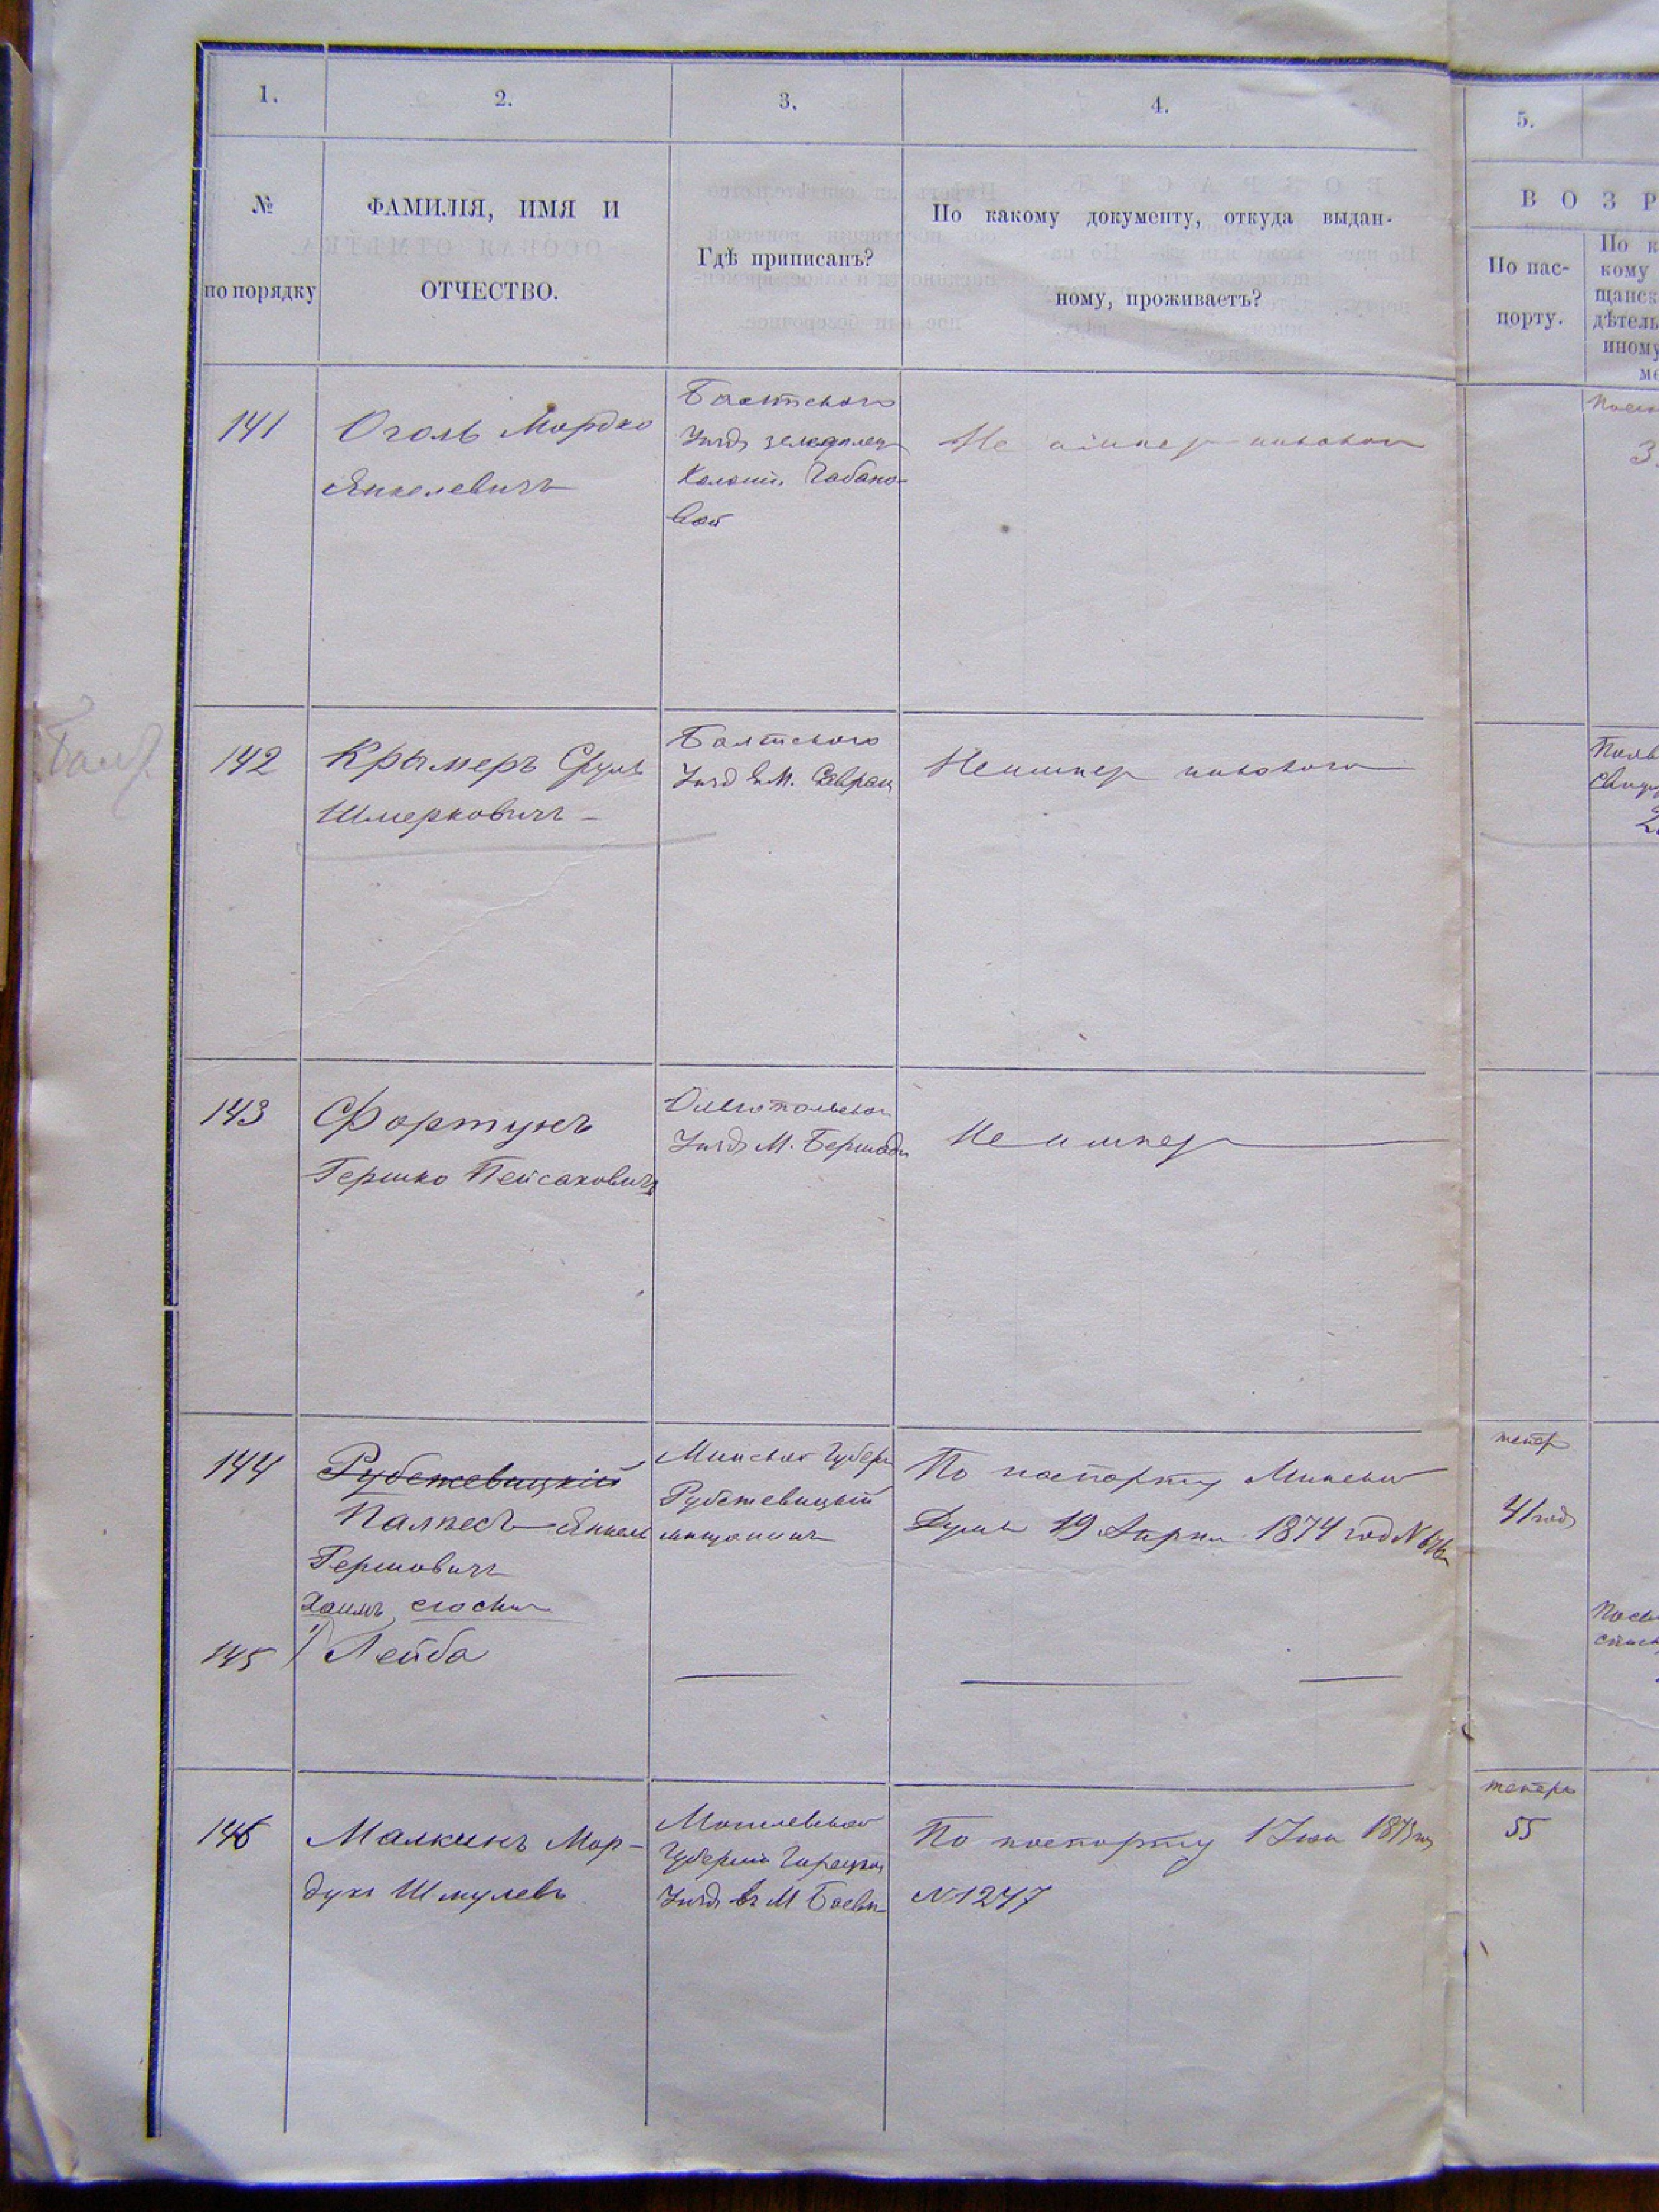 1.
2.
3.
4.
5.
№
по порядку
ФАМИЛІЯ, ИМЯ И
ОТЧЕСТВО.
Гдѣ приписанъ?
По какому документу, откуда выдан-
ному, проживаетъ?
В О З Р
По пас-
порту.
По к
кому
щанск
дѣтель
иному
ме
141
Оголь Мордко
Янкелевичъ
Балтского
Уѣзда
Колоніи Чабано-
вой
Не имѣетъ никакого
142
Крымеръ Сруль
Шмерковичъ
Балтского
Уѣзд въ М. Саврани
Не имѣетъ никакого
143
Фортунъ
Гершко Пейсаховичъ
Ольгопольскаго
Уѣзда М. Бершади
Не имѣетъ
144
Рубежевицкій
Палѣесъ Янкель
Гершовичъ
Хаимъ, его сын
Минской Губерн
Рубежевицкій
мѣщанинъ
По паспорту Минской
Думы 19 Апрѣл 1874 год №
тепер
41 год
145
1) Лейба
146
Малкинъ Мор-
духъ Шмулевъ
Могилевской
Губерніи Горецкаго
Уѣзда въ М Баевѣ
По паспорту 1 Іюн 1873
№ 1247
теперь
55